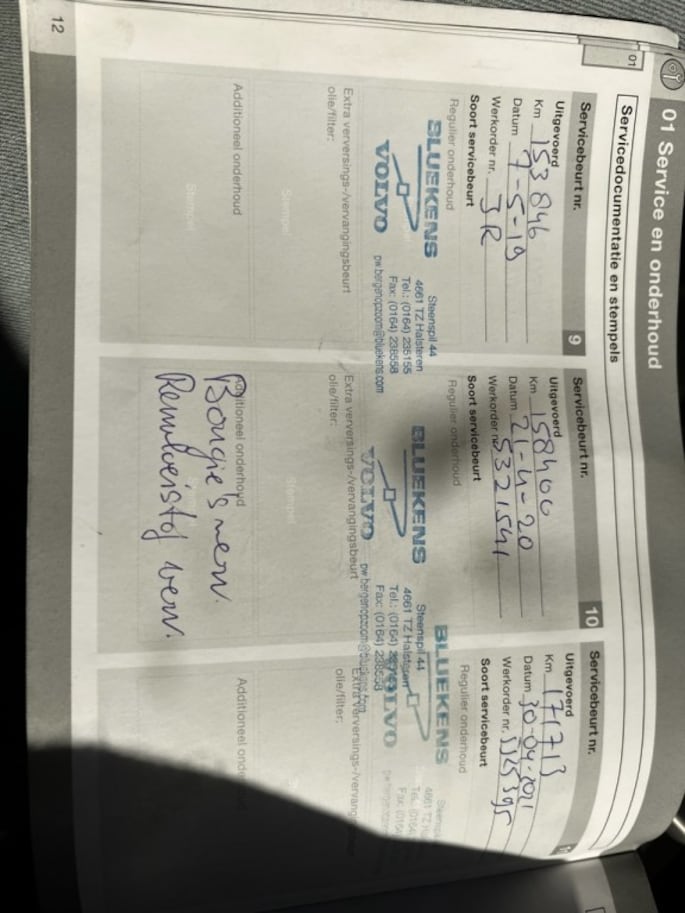 01 Service en onderhoud
01
Servicedocumentatie en stempels
Servicebeurt nr. 9
Uitgevoerd
Km 153846
Datum 7-5-19
Werkorder nr. JR
Soort servicebeurt
Regulier onderhoud
BLUEKENS
VOLVO
Steenspil 44
4661 TZ Halsteren
Tel.: (0164) 236155
Fax: (0164) 238558
pw.bergenopzoom@bluekens.com
Extra verversings-/vervangingsbeurt
olie/filter:
Stempel
Additioneel onderhoud
Stempel
Servicebeurt nr. 10
Uitgevoerd
Km 158400
Datum 21-4-20
Werkorder nr. 5321541
Soort servicebeurt
Regulier onderhoud
BLUEKENS
VOLVO
Steenspil 44
4661 TZ Halsteren
Tel.: (0164)
Fax: (0164) 238558
pw.bergenopzoom@bluekens.com
Extra verversings-/vervangingsbeurt
olie/filter:
Stempel
Additioneel onderhoud
Bougie's verv.
Remvloeistof verv.
Servicebeurt nr.
Uitgevoerd
Km 171713
Datum 30-04-2021
Werkorder nr. 5325395
Soort servicebeurt
Regulier onderhoud
BLUEKENS
VOLVO
4661 TZ
Tel.: (0164
Fax: (0164
Extra verversings-/vervang
olie/filter:
Additioneel onde
12